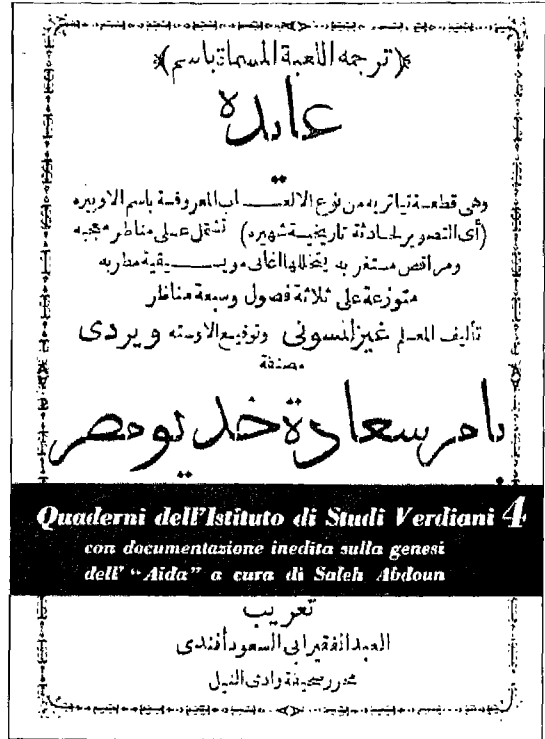 (ترجمه اللعبة المسماة باسم)
عايده
وهى قطعة تياتريه من نوع الالعاب المعروفة باسم الاوبيره
(أى التصوير لحادثة تاريخية شهيره) تشتمل على مناظر معجبه
ومراقص مستغربه يتخللها اغانى مويسيقية مطربه
متوزعة على ثلاثة فصول وسبعة مناظر
تأليف المعلم غيزلنسونى وتوقيع الاوسته ويردى
مصنفة
بامر سعادة خديو مصر
Quaderni dell'Istituto di Studi Verdiani 4
con documentazione inedita sulla genesi
dell' "Aida" a cura di Saleh Abdoun
تعريب
العبد الفقير ابى السعود أفندى
محرر صحيفة وادى النيل